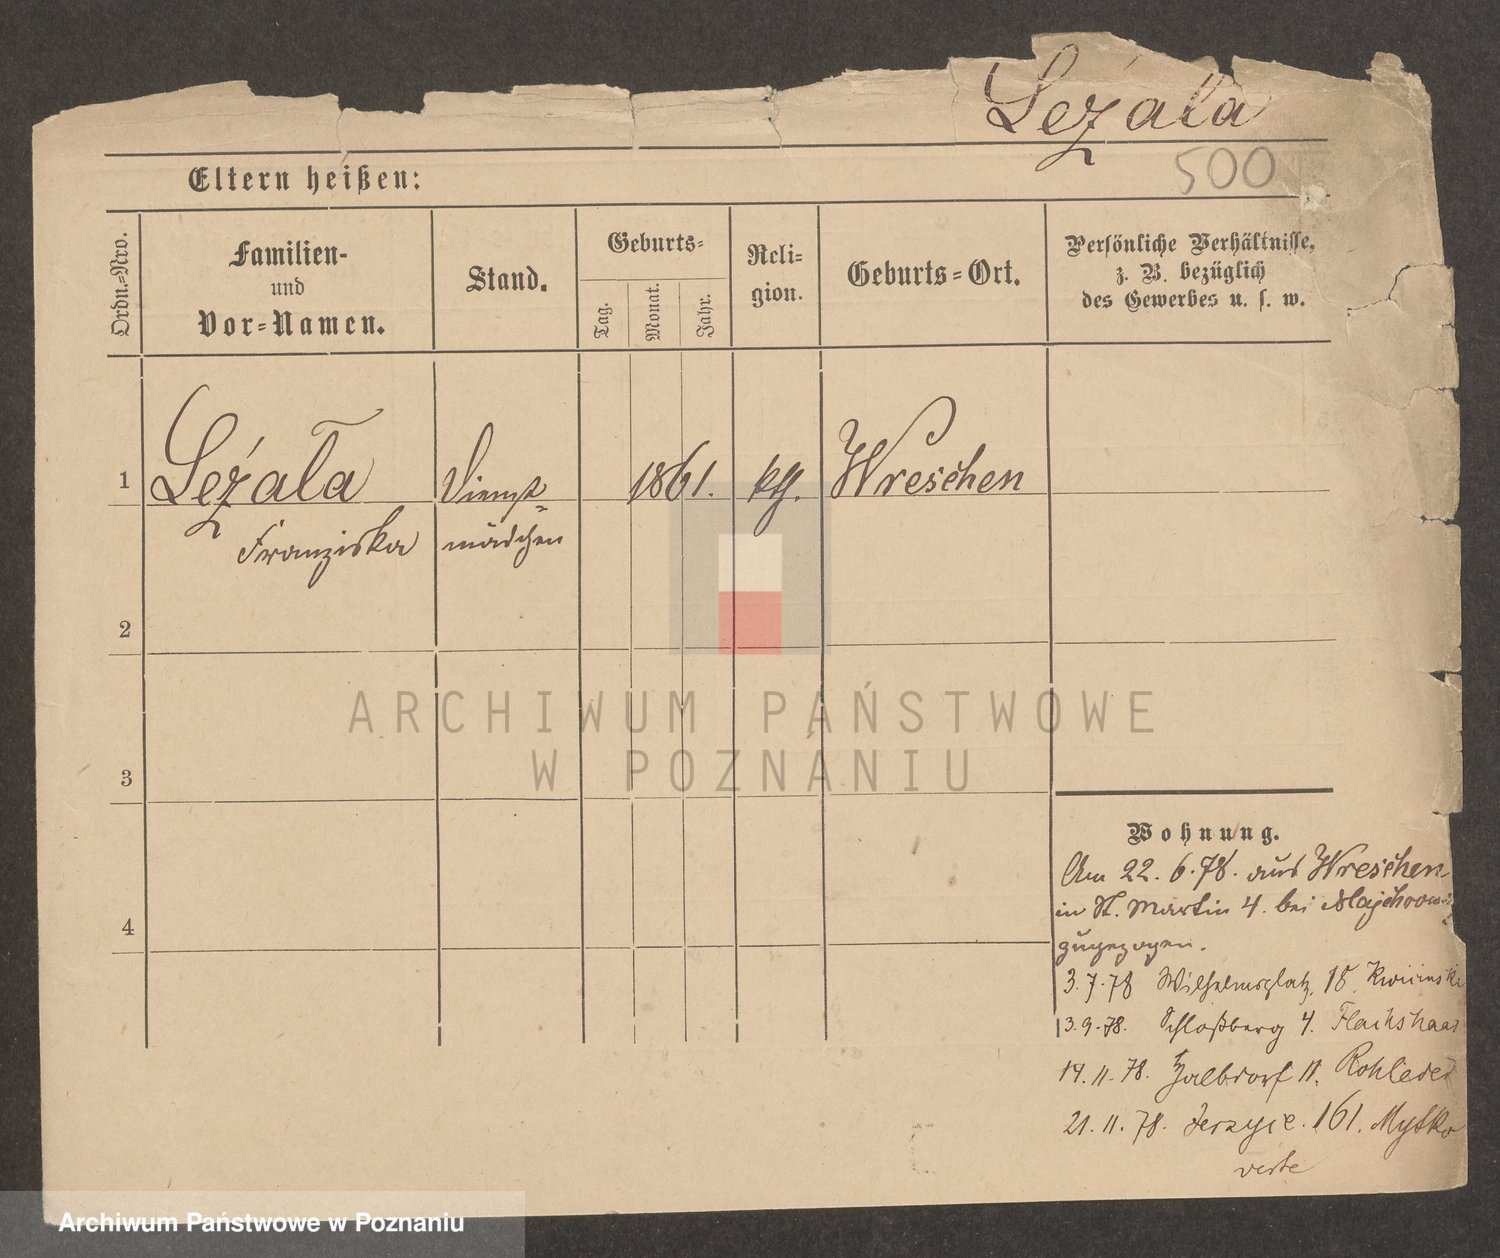 Leźała
500
Eltern heißen:
Ordn.=Nro.
Familien-
und
Vor=Namen.
Stand.
Geburts=
Tag.
Monat.
Jahr.
Reli=
gion.
Geburts=Ort.
Persönliche Verhältnisse,
z. B. bezüglich
des Gewerbes u. s. w.
1
Leźała
Franziska
Dienst=
mädchen
1861.
kth.
Wreschen
2
3
4
Wohnung.
Am 22.6.78. aus Wreschen
in St. Martin 4. bei
zugezogen.
3.7.78 Wilhelmsplatz 18.
13.9.78. Schloßberg 4.
14.11.78. Halbdorf 11. Rohleder
21.11.78. Jerzyce. 161. Mytko
verte
ARCHIWUM PAŃSTWOWE
W POZNANIU
Archiwum Państwowe w Poznaniu